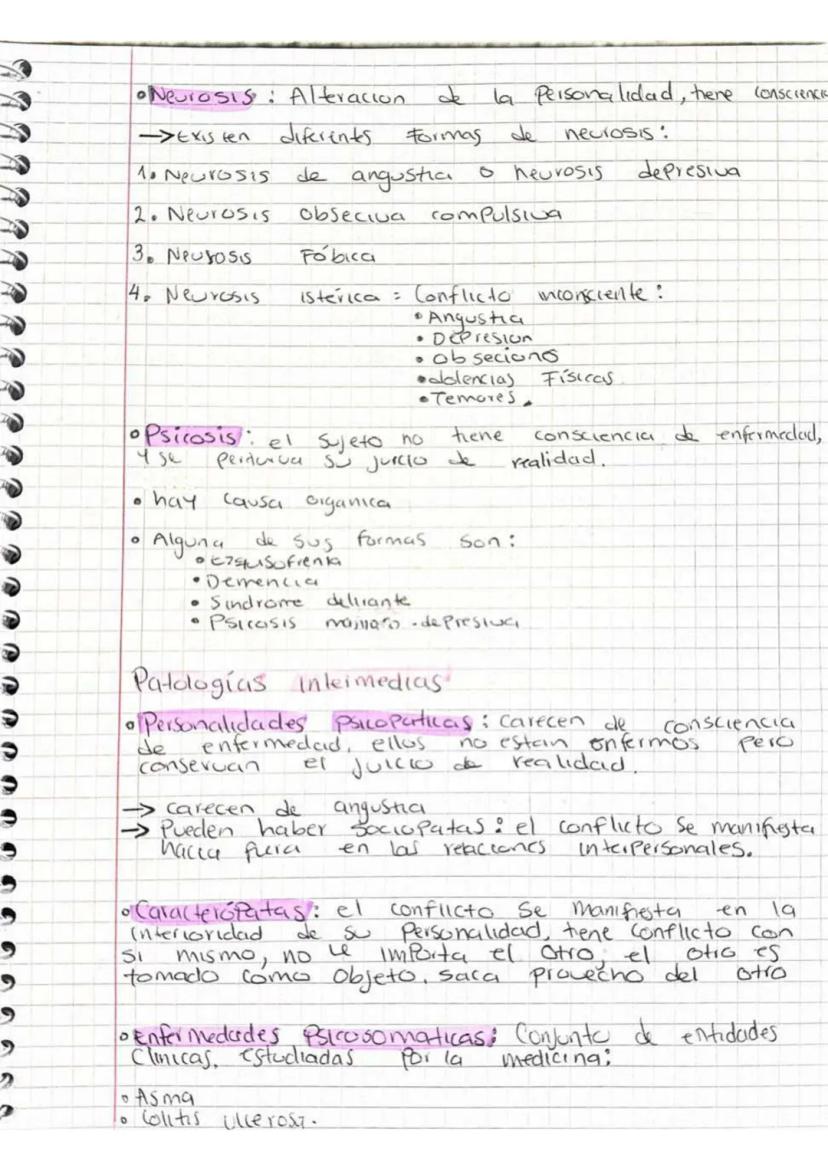 • Neurosis : Alteracion de la Personalidad, tiene consciencia
→ Existen diferentes formas de neurosis:
1. Neurosis de angustia o neurosis depresiva
2. Neurosis obseciva compulsiva
3. Neurosis Fóbica
4. Neurosis istérica = Conflicto inconsciente:
• Angustia
• Depresion
• obseciono
• dolencias Físicas
• Temores.
• Psicosis: el sujeto no tiene consciencia de enfermedad,
y se perturva su juicio de realidad.
• hay causa organica
• Alguna de sus formas son:
• Ezquisofrenia
• Demencia
• Sindrome delirante
• Psicosis depresiva
Patologías intermedias
• Personalidades psicopaticas: carecen de consciencia
de enfermedad, ellos no estan enfermos pero
conservan el juicio de realidad.
→ carecen de angustia
→ Pueden haber sociopatas: el conflicto se manifiesta
hacia fuera en las relaciones interpersonales.
• Caracterópatas: el conflicto se manifiesta en la
interioridad de su personalidad, tiene conflicto con
si mismo, no le importa el otro, el otro es
tomado como objeto, saca provecho del otro
• Enfermedades Psicosomaticas: Conjunto de entidades
clinicas, estudiadas por la medicina:
• Asma
• Colitis ulcerosa.